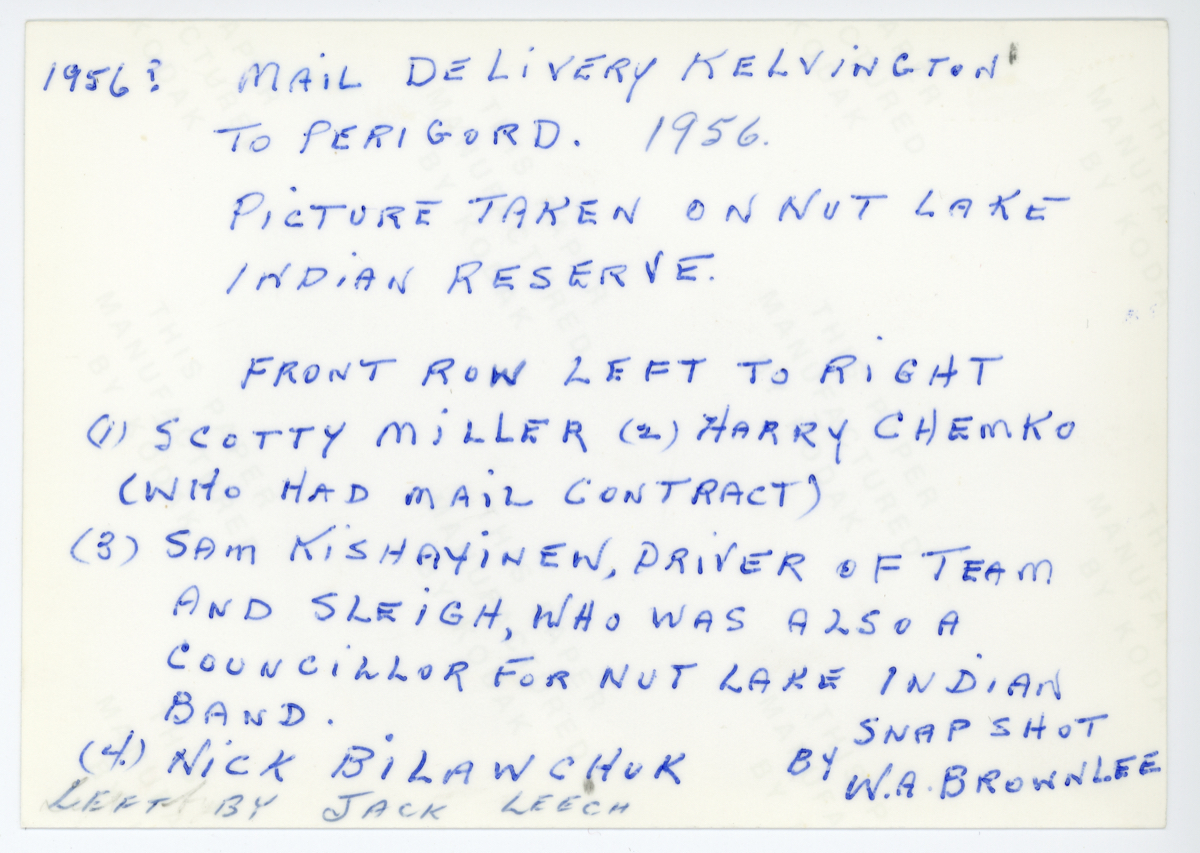 1956? MAIL DELIVERY KELVINGTON
TO PERIGORD. 1956.
PICTURE TAKEN ON NUT LAKE
INDIAN RESERVE.
FRONT ROW LEFT TO RIGHT
(1) SCOTTY MILLER (2) HARRY CHEMKO
(WHO HAD MAIL CONTRACT)
(3) SAM KISHAYINEW, DRIVER OF TEAM
AND SLEIGH, WHO WAS ALSO A
COUNCILLOR FOR NUT LAKE INDIAN
BAND.
(4) NICK BILAWCHUK
SNAP SHOT
BY W.A. BROWNLEE
LEFT BY JACK LEECH
THIS PAPER
MANUFACTURED
BY KODAK